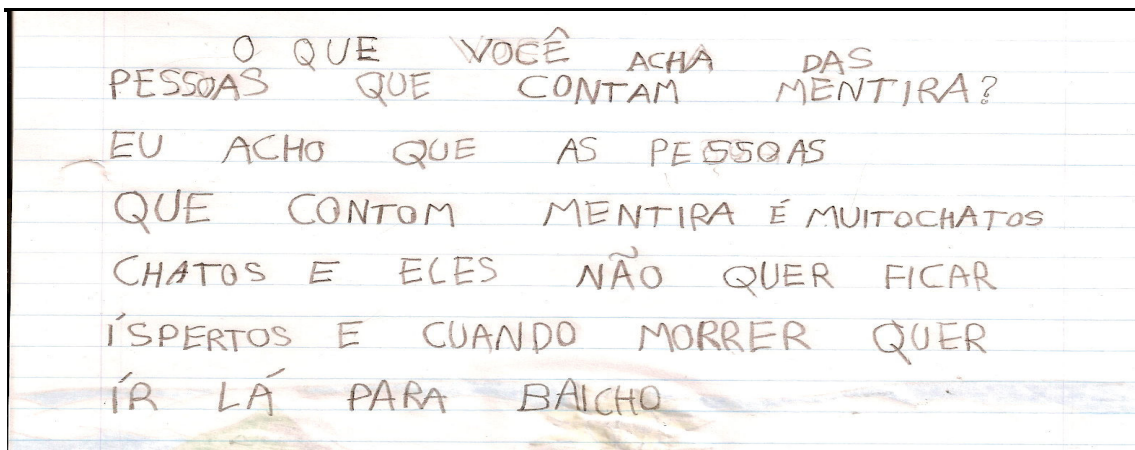 O QUE VOCÊ ACHA DAS
PESSOAS QUE CONTAM MENTIRA?
EU ACHO QUE AS PESSOAS
QUE CONTOM MENTIRA É MUITOCHATOS
CHATOS E ELES NÃO QUER FICAR
ÍSPERTOS E CUANDO MORRER QUER
ÍR LÁ PARA BAICHO